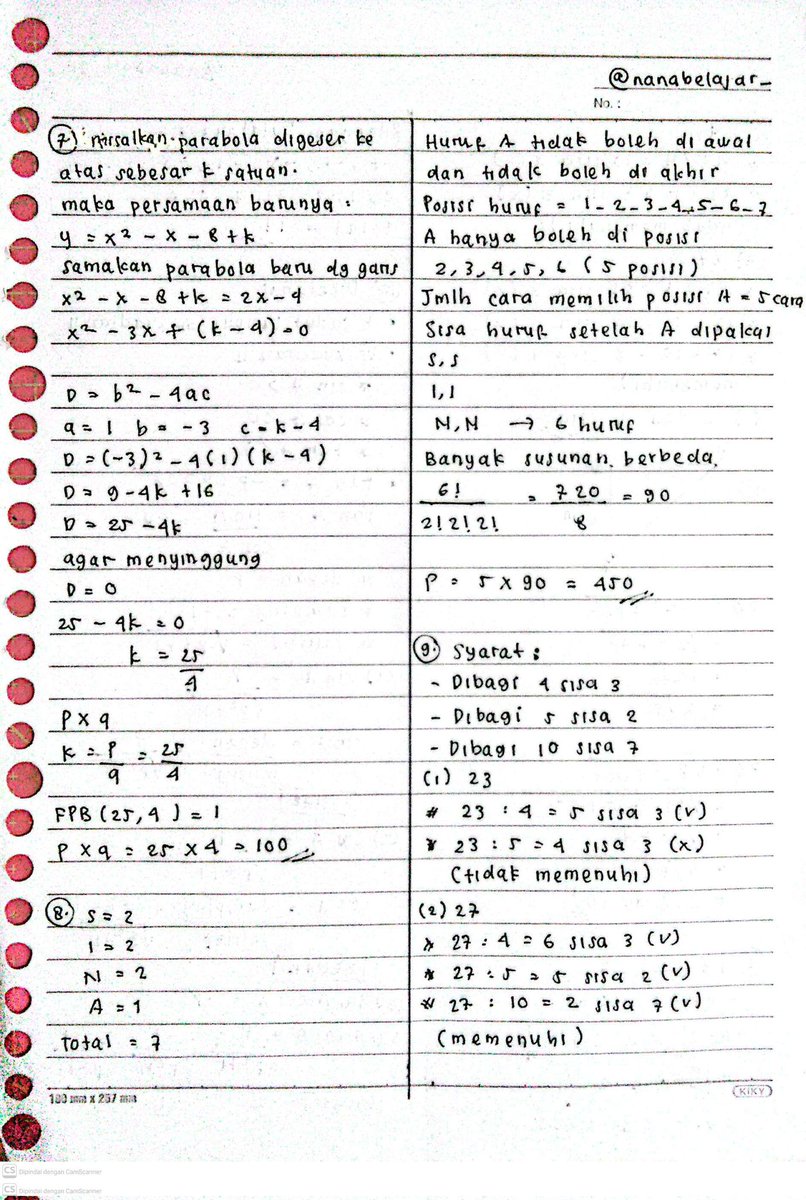 @nanabelajar_
No. :
7. misalkan parabola digeser ke
atas sebesar k satuan.
maka persamaan barunya :
y = x² - x - 8 + k
samakan parabola baru dg garis
x² - x - 8 + k = 2x - 4
x² - 3x + (k - 4) = 0
D = b² - 4ac
a = 1 b = -3 c = k - 4
D = (-3)² - 4(1)(k - 4)
D = 9 - 4k + 16
D = 25 - 4k
agar menyinggung
D = 0
25 - 4k = 0
k = 25/4
P x q
k = P/q = 25/4
FPB (25,4) = 1
P x q = 25 x 4 = 100
8. S = 2
I = 2
N = 2
A = 1
Total = 7
Huruf A tidak boleh di awal
dan tidak boleh di akhir
Posisi huruf = 1-2-3-4-5-6-7
A hanya boleh di posisi
2,3,4,5,6 (5 posisi)
Jmlh cara memilih posisi A = 5 cara
Sisa huruf setelah A dipakai
S,S
I,I
N,N → 6 huruf
Banyak susunan berbeda,
6!/2!2!2! = 720/8 = 90
P = 5 x 90 = 450
9. Syarat :
- Dibagi 4 sisa 3
- Dibagi 5 sisa 2
- Dibagi 10 sisa 7
(1) 23
* 23 : 4 = 5 sisa 3 (v)
* 23 : 5 = 4 sisa 3 (x)
(tidak memenuhi)
(2) 27
* 27 : 4 = 6 sisa 3 (v)
* 27 : 5 = 5 sisa 2 (v)
* 27 : 10 = 2 sisa 7 (v)
(memenuhi)
180 mm x 257 mm
KIKY
CS Dipindai dengan CamScanner
CS Dipindai dengan CamScanner